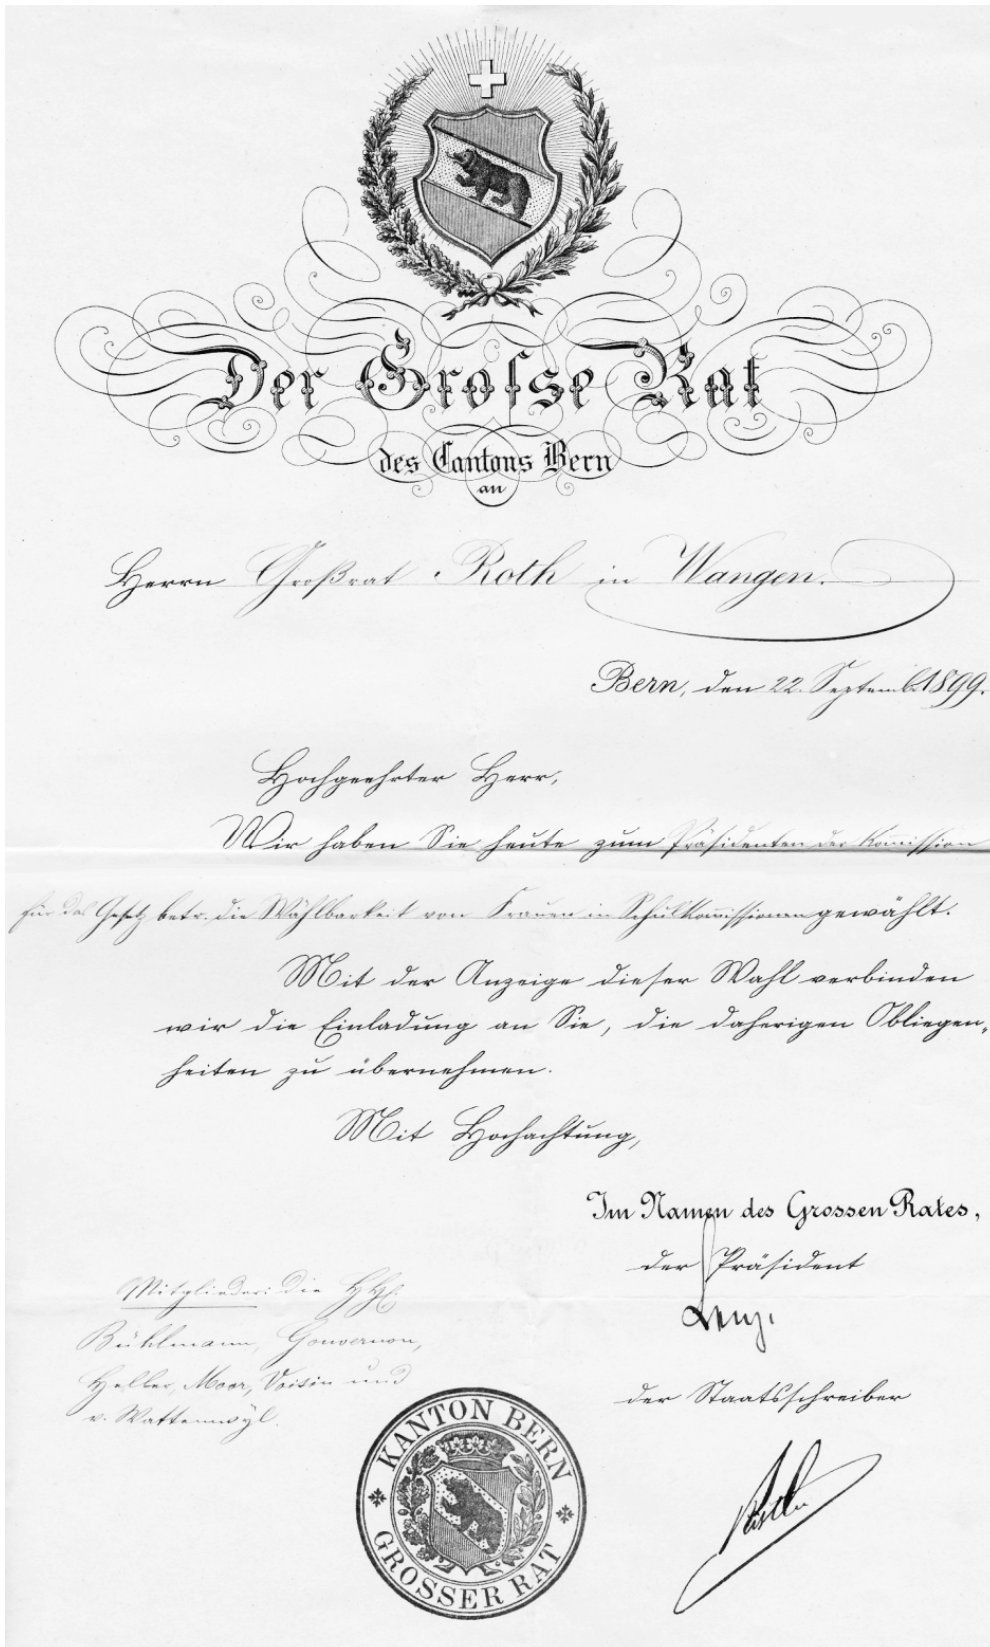 Der Grosse Rat
des Cantons Bern
an
Herrn Großrat Roth in Wangen.
Bern, den 22. Septemb. 1899.
Hochgeehrter Herr,
Wir haben Sie heute zum Präsidenten der Kom̅ission
für das Gesetz betr. die Wählbarkeit von Frauen in Schulkom̅issionen gewählt.
Mit der Anzeige dieser Wahl verbinden
wir die Einladung an Sie, die daherigen Obliegen-
heiten zu übernehmen.
Mit Hochachtung,
Im Namen des Grossen Rates,
der Präsident
Lenz.
Mitglieder: die HH:
Bühlmann, Gouvernon,
Heller, Moor, Voisin und
v. Wattenwyl.
der Staatsschreiber
KANTON BERN
GROSSER RAT